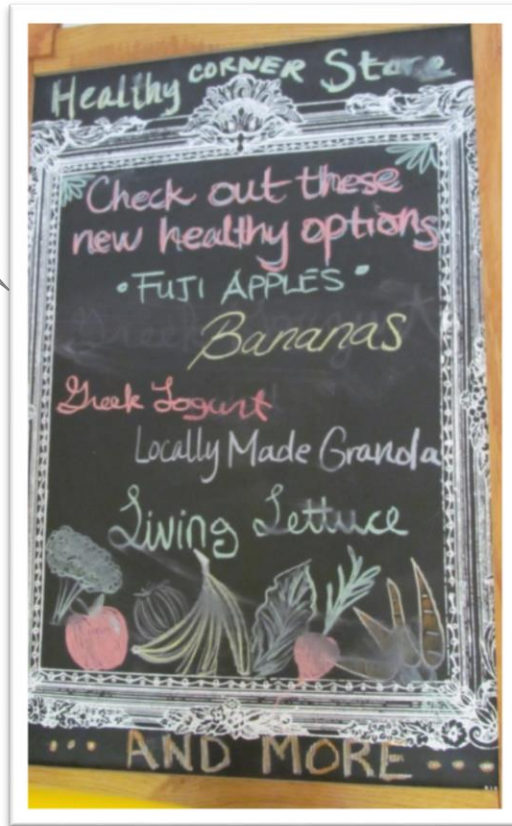 Healthy CORNER Store
Check out these
new healthy options
• FUJI APPLES •
Bananas
Greek Yogurt
Locally Made Granola
Living Lettuce
... AND MORE ...